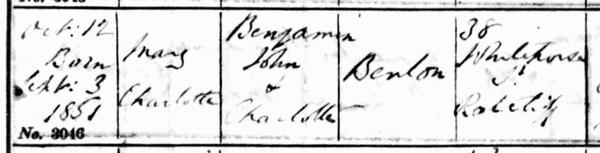 Oct: 12
Born
Sept: 3
1851
No. 3046
Mary
Charlotte
Benjamin
John
&
Charlotte
Benton
38
Whitehorse
St